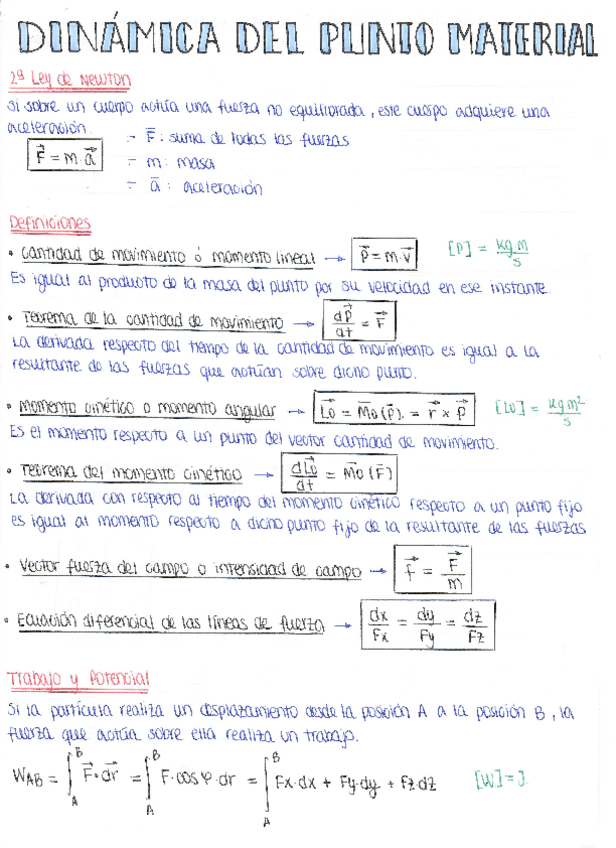 DINÁMICA DEL PUNTO MATERIAL
2ª Ley de Newton
Si sobre un cuerpo actúa una fuerza no equilibrada, este cuerpo adquiere una
aceleración.
- F̅ : suma de todas las fuerzas
F⃗ = m·a⃗
- m : masa
- a̅ : aceleración
Definiciones
• Cantidad de movimiento ó momento lineal → p⃗ = m·v⃗ [P] = kg·m/s
Es igual al producto de la masa del punto por su velocidad en ese instante.
• Teorema de la cantidad de movimiento → dp⃗/dt = F⃗
La derivada respecto del tiempo de la cantidad de movimiento es igual a la
resultante de las fuerzas que actúan sobre dicho punto.
• Momento cinético o momento angular → L⃗o = M⃗o (p⃗). = r⃗ × p⃗ [Lo] = kg m²/s
Es el momento respecto a un punto del vector cantidad de movimiento.
• Teorema del momento cinético → dL⃗o/dt = M⃗o (F⃗)
La derivada con respecto al tiempo del momento cinético respecto a un punto fijo
es igual al momento respecto a dicho punto fijo de la resultante de las fuerzas
• Vector fuerza del campo o intensidad de campo → f⃗ = F⃗/m
• Ecuación diferencial de las líneas de fuerza → dx/Fx = dy/Fy = dz/Fz
Trabajo y Potencial
Si la partícula realiza un desplazamiento desde la posición A a la posición B, la
fuerza que actúa sobre ella realiza un trabajo.
W_AB = ∫_A^B F⃗·dr⃗ = ∫_A^B F·cos φ·dr = ∫_A^B Fx·dx + Fy·dy + Fz·dz [W]=J.